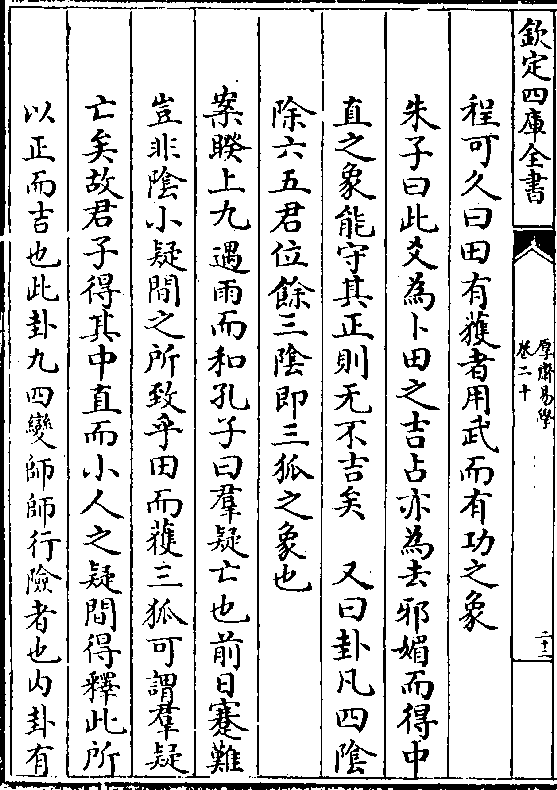 欽定四庫全書
厚齋易學
卷二十
二十二
程可久曰田有獲者用武而有功之象
朱子曰此爻為卜田之吉占亦為去邪媚而得中
直之象能守其正則无不吉矣　又曰卦凡四陰
除六五君位餘三陰即三狐之象也
案睽上九遇雨而和孔子曰羣疑亡也前日蹇難
豈非陰小疑間之所致乎田而獲三狐可謂羣疑
亡矣故君子得其中直而小人之疑間得釋此所
以正而吉也此卦九四變師師行險者也内卦有